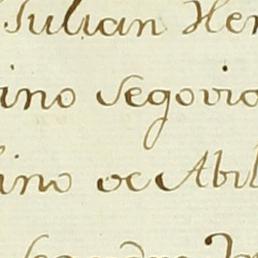 Julian Her
ino Segovia
ino de Abil